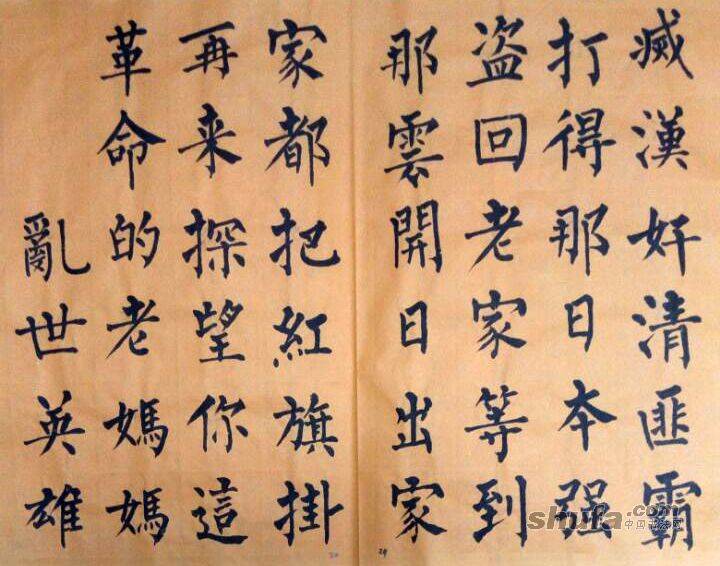 滅漢奸清匪霸
打得那日本强
盗回老家等到
那雲開日出家
家都把紅旗掛
再来探望你這
革命的老媽媽
亂世英雄
shufa.com
中国书法网
29
30